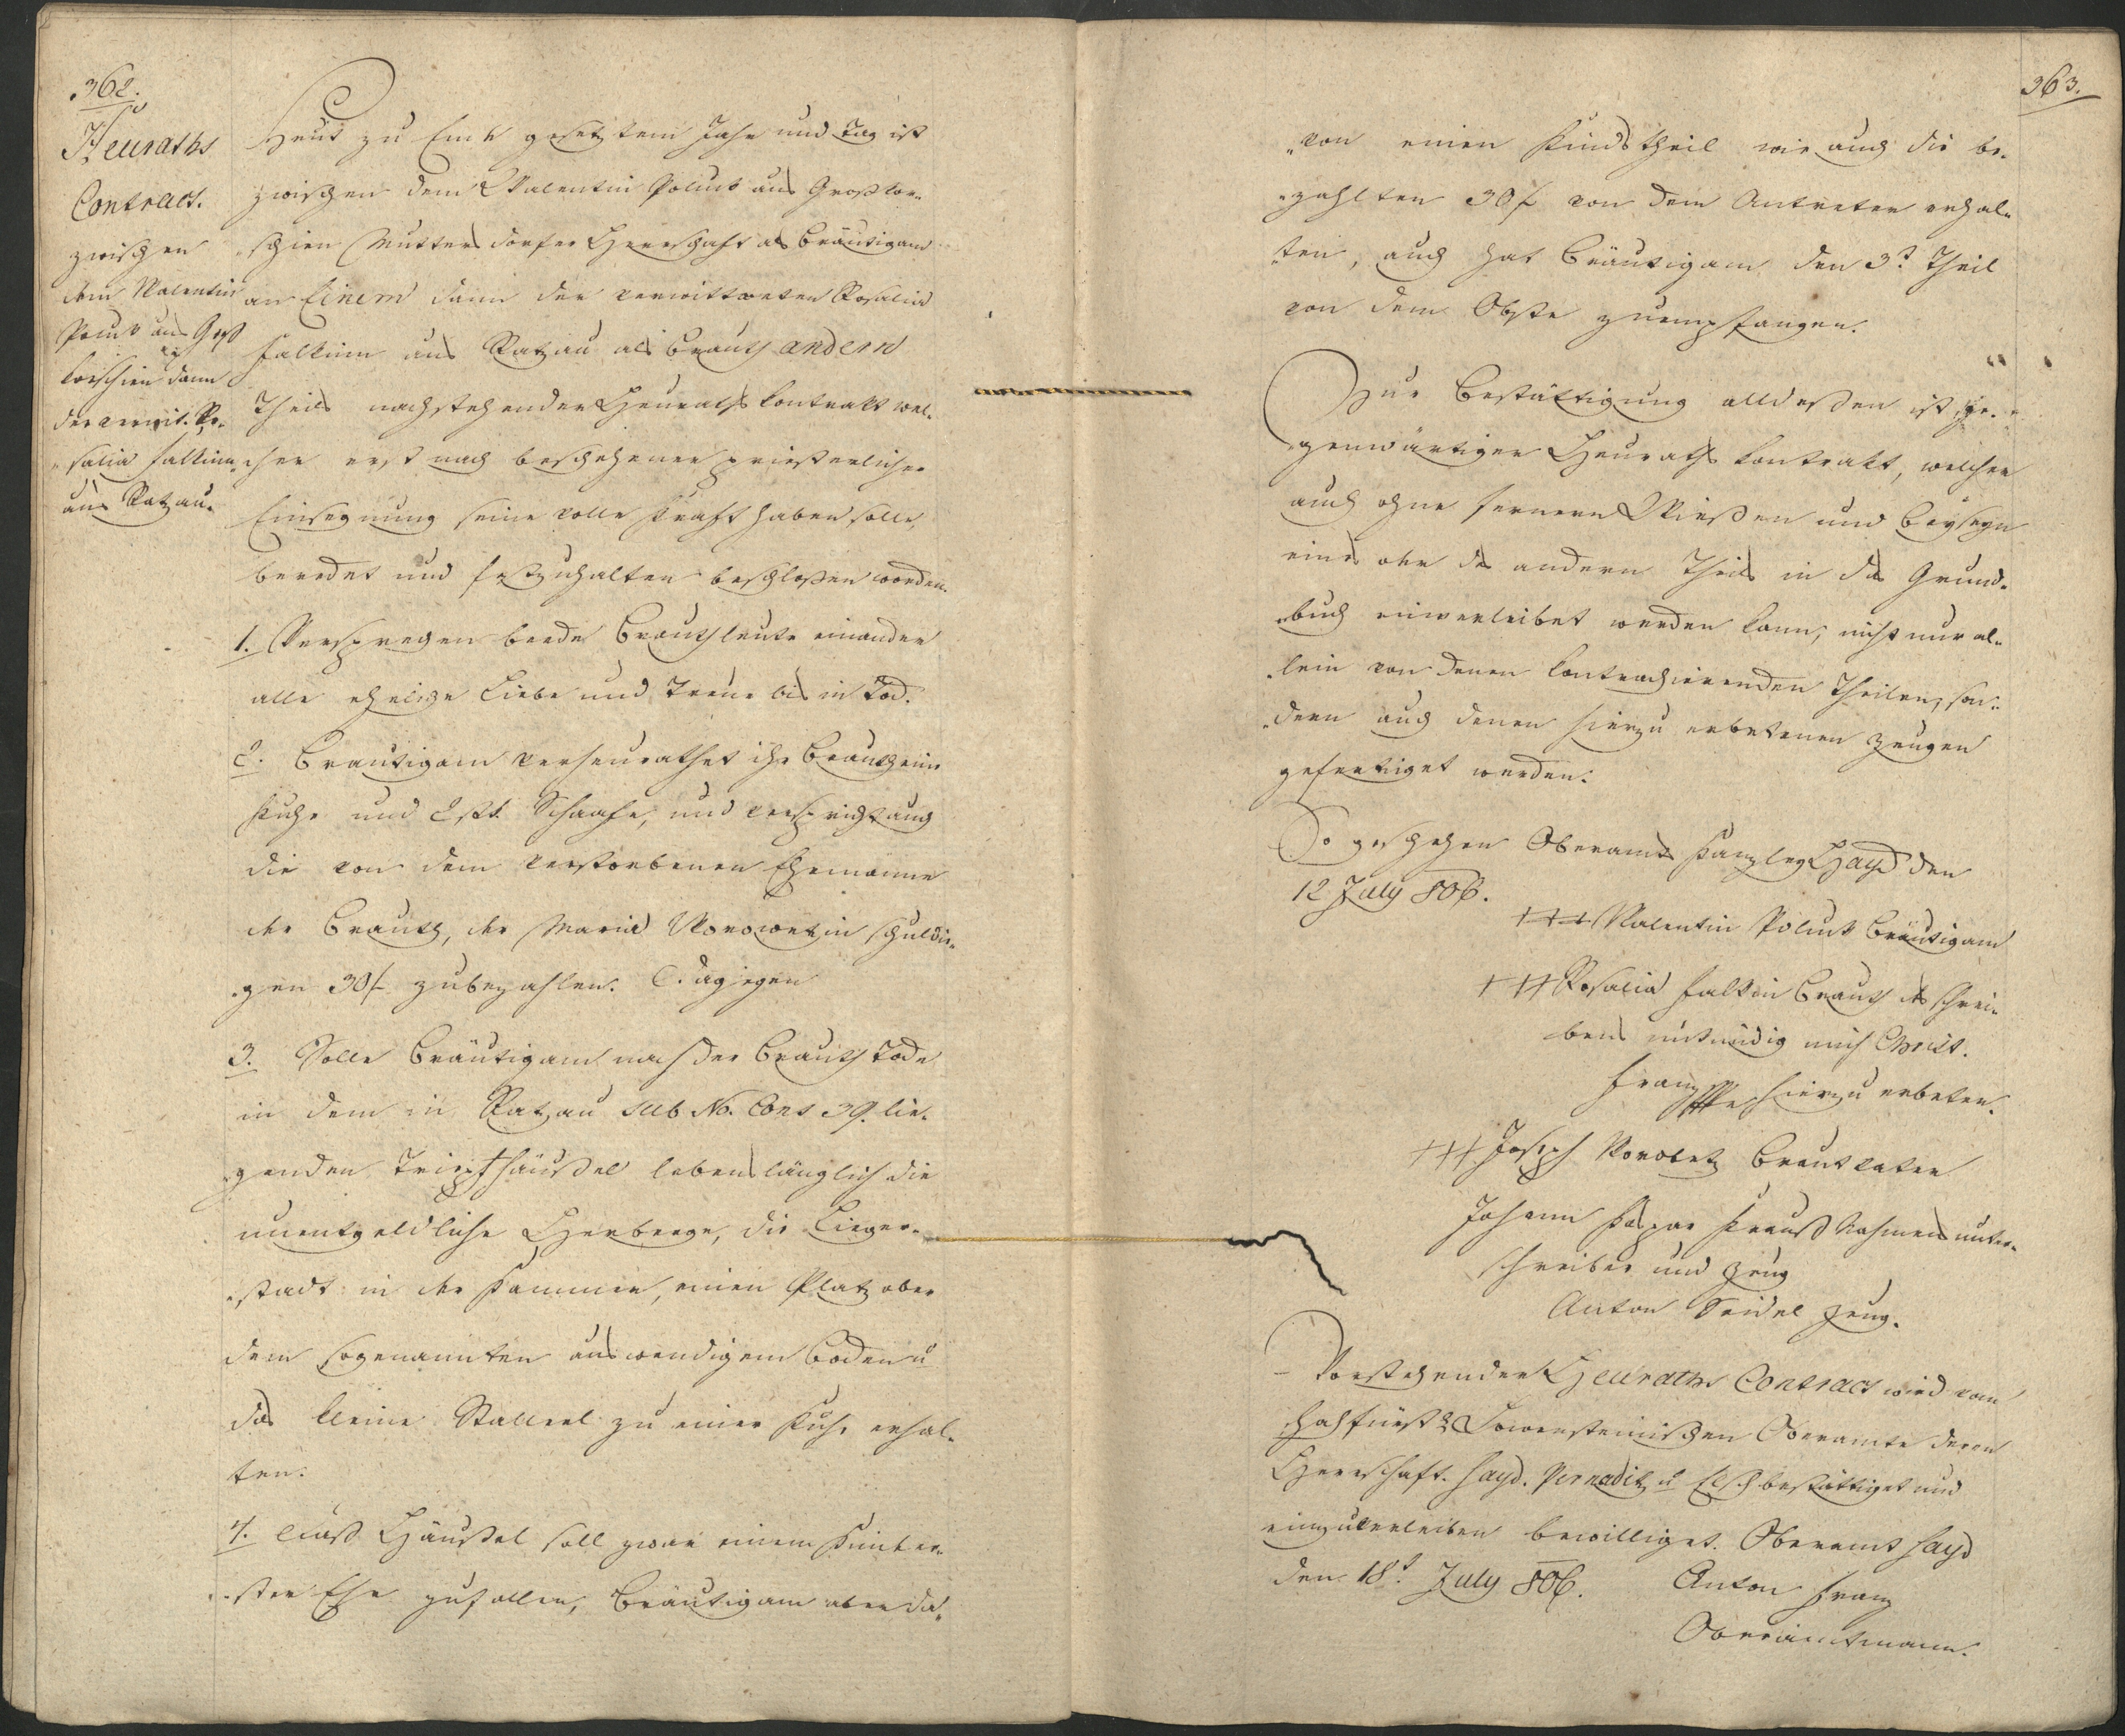 362.
Heuraths
Contract.
zwischen
dem Valentin
Polub aus Groß
korschien dann
der verwit. Ro-
salia Falkinn
aus Ratzau.
Heut zu Ende gesetztem Jahr und Tag ist
zwischen dem Valentin Polub aus Großkor-
schien Muttersdorfer Herrschaft als Bräutigam
an Einem dann der verwittweten Rosalia
Falkinn aus Ratzau als Brauth andern
Theils nachstehender Heuraths Kontrakt wel-
cher erst nach beschehener priesterlicher
Einsegnung seine volle Kraft haben solle,
beredet und festzuhalten beschloßen worden.
1. Versprechen beede Brauthleute einander
alle eheliche Liebe und Treue bis in Tod.
2. Bräutigam verheurathet ihr Brauth eine
Kuhe und 2 stk. Schaafe, und verspricht auch
die von dem verstorbenen Ehemanne
der Brauth, der Maria Worowetzin schuldi-
gen 30 f zubezahlen. Dagegen
3. Solle Bräutigam nach der Brauth Tode
in dem in Ratzau sub No. Cons 39. lie-
genden Triepthäußel lebenslänglich die
unentgeldliche Herberge, die Lieger-
stadt in der Kammer, einen Platz ober
dem sogenannten auswendigem Boden u
das kleine Stallerl zu einer Kuhe erhal-
ten.
4. dieß Häußel soll zwar einem Kind er-
ster Ehe zufallen, Bräutigam aber da-
363.
von einen Kindstheil wie auch die be-
zahlten 30 f von dem Antreter erhal-
ten, auch hat Bräutigam den 3t. Theil
von dem Obste zuempfangen.
Zur Bestättigung alldeßen ist ge-
genwärtiger Heuraths Kontrakt, welcher
auch ohne fernern Wießen und Beyseyn
eines oder des andern Theils in das Grund-
buch einverleibet werden kann, nicht nur al-
lein von denen kontrachierenden Theilen, son-
dern auch denen hierzu erbetenen Zeugen
gefertiget worden.
So geschehen Oberamts Kanzley Hayd den
12 July 806.
+++ Valentin Polub Bräutigam
+++ Rosalia Falkin Brauth des schrei-
bens unkündig mich Christ.
Franz hierzu erbeten.
+++ Joseph Worobetz Brautvater
Johann Kaspar Krauß Nahmens unter-
schreiber und Zeug
Anton Seidel Zeug.
Vorstehender Heuraths Contract wird von
hochfürstl. Löwensteinischen Oberamte deren
Herrschaft. Hayd. Pernaditz u Elsch bestättiget und
einzuverleiben bewilliget. Oberamt Hayd
den 18t. July 806. Anton Franz
Oberamtmann.